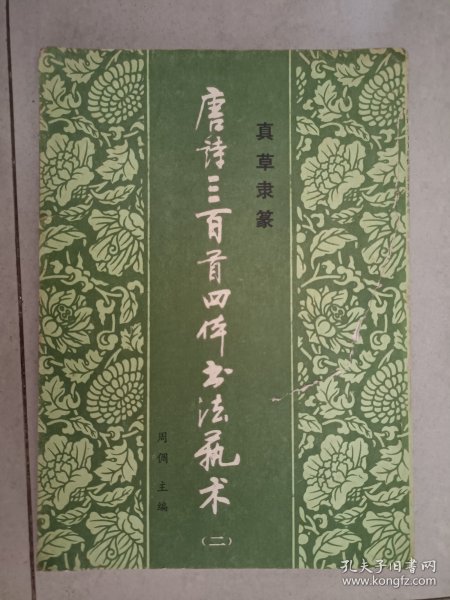 真草隶篆
唐诗三百首四体书法艺术
（二）
周倜 主编
孔夫子旧书网
www.kongfz.com